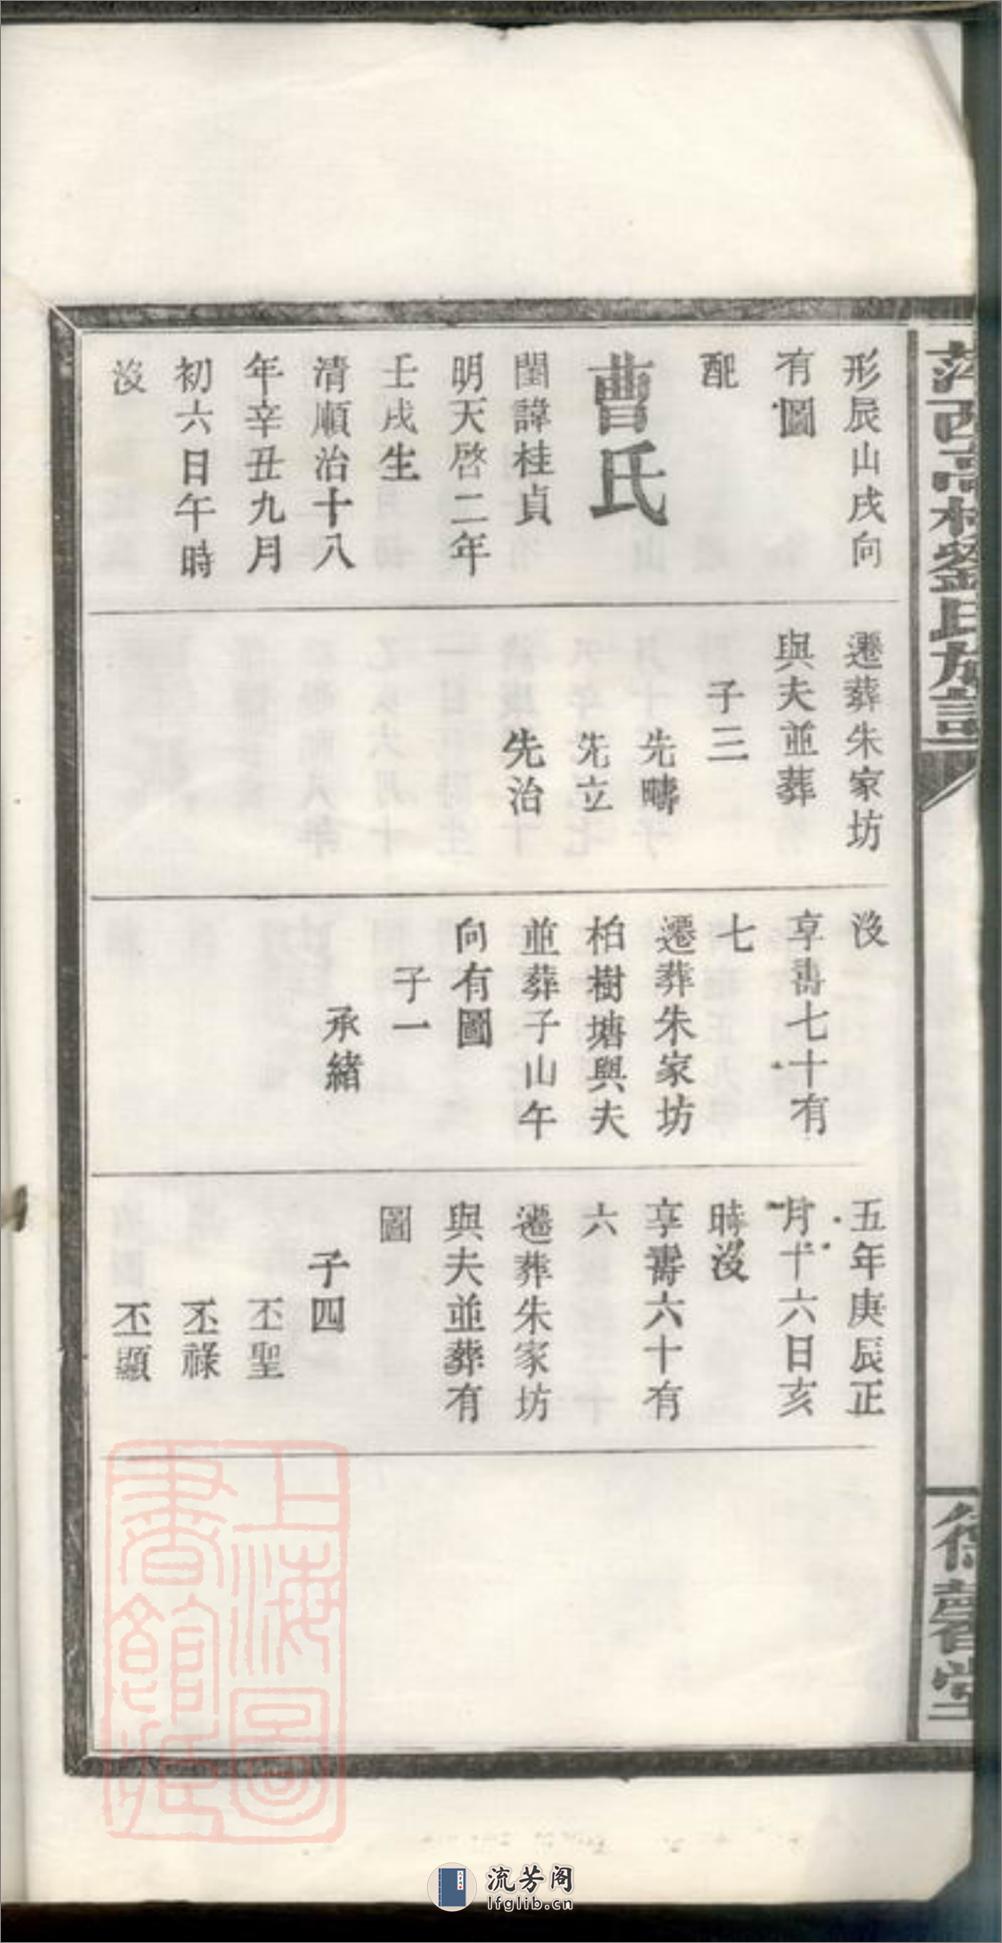 形辰山戌向
有圖
配
曹氏
閨諱桂貞
明天啓二年
壬戌生
清順治十八
年辛丑九月
初六日午時
沒
遷葬朱家坊
與夫並葬
子三
先疇
先立
先治
沒
享壽七十有
七
遷葬朱家坊
柏樹塘與夫
並葬子山午
向有圖
子一
承緒
五年庚辰正
月十六日亥
時沒
享壽六十有
六
遷葬朱家坊
與夫並葬有
圖
子四
丕聖
丕祿
丕顯
上海圖
書館藏
流芳阁
lfglib.cn